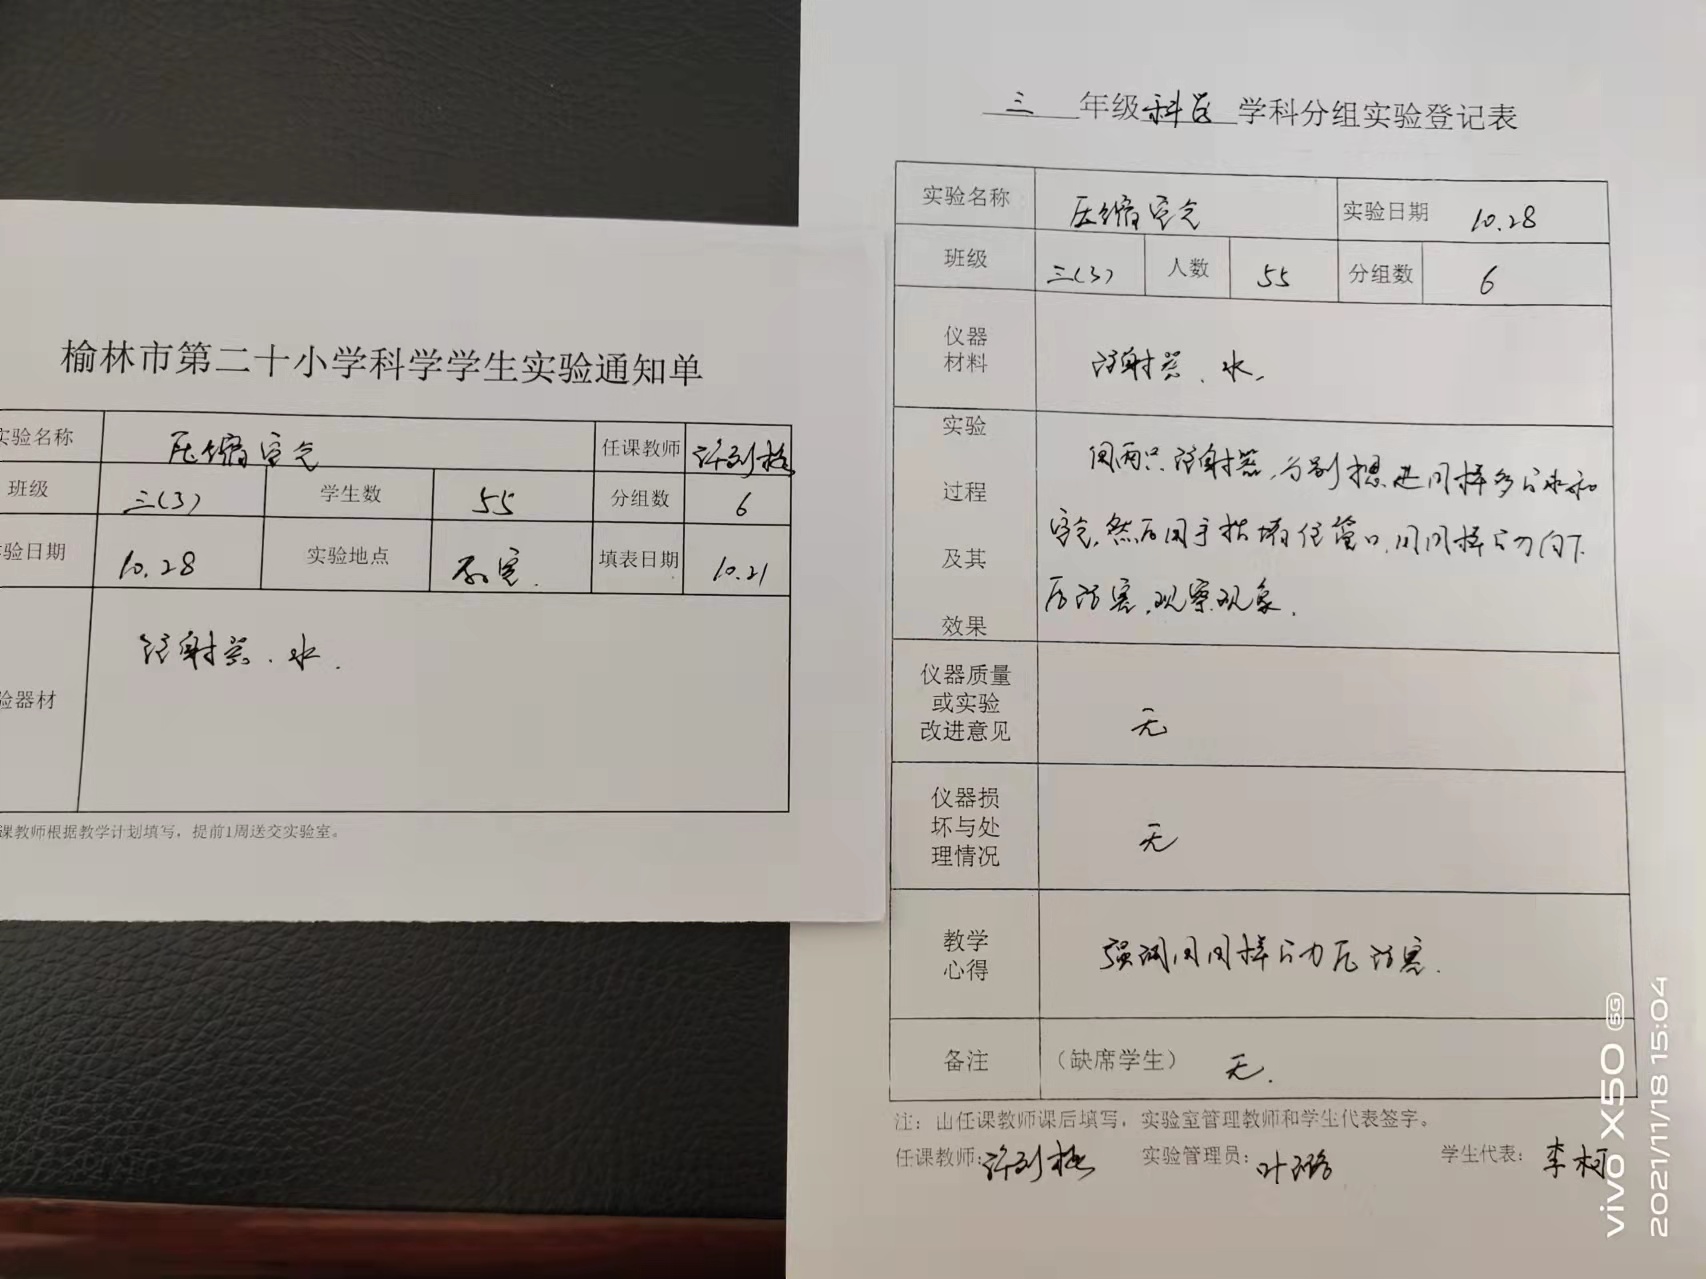 榆林市第二十小学科学学生实验通知单
实验名称 压缩空气 任课教师
班级 三(3) 学生数 55 分组数 6
验日期 10.28 实验地点 填表日期 10.21
验器材 注射器、水.
课教师根据教学计划填写，提前1周送交实验室。
三 年级 科学 学科分组实验登记表
实验名称 压缩空气 实验日期 10.28
班级 三(3) 人数 55 分组数 6
仪器
材料
注射器、水.
实验
过程
及其
效果
用两只注射器,分别 进同样多的水和
空气,然后用手指堵住管口,用同样的力向下
压活塞,观察现象.
仪器质量
或实验
改进意见
无
仪器损
坏与处
理情况
无
教学
心得
强调用同样的力压活塞.
备注 (缺席学生) 无.
注：由任课教师课后填写，实验室管理教师和学生代表签字。
任课教师: 实验管理员: 叶璐 学生代表: 李柯
vivo X50 5G
2021/11/18 15:04